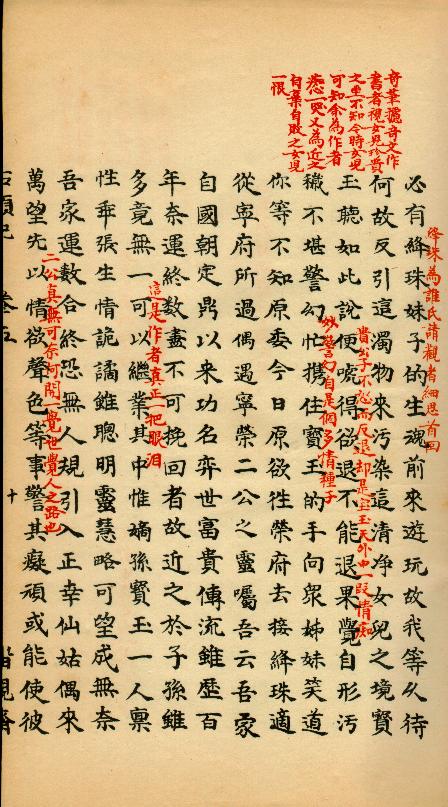 奇筆攄奇文作
書者視女兒珍貴
之至不知今時女兒
可知余為作者
癡心一哭又為近之
自棄自敗之女兒
一恨
絳珠為誰氏請觀者細思首回
必有絳珠妹子的生魂前來遊玩故我等久待
何故反引這濁物來污染這清净女兒之境寳
貴公子不怒而反退却是寳玉天外中一段情痴
玉聼如此說便唬得欲退不能退果覺自形污
妙警幻自是個多情種子
穢不堪警幻忙携住寳玉的手向眾姊妹笑道
你等不知原委今日原欲徃榮府去接絳珠適
從寧府所過偶遇寧榮二公之靈囑吾云吾家
自國朝定鼎以來功名奕世富貴傳流雖歷百
年奈運終數盡不可挽回者故近之於子孫雖
這是作者真正一把眼淚
多竟無一可以繼業其中惟嫡孫寳玉一人禀
性乖張生情詭譎雖聰明靈慧略可望成無奈
吾家運數合終恐無人規引入正幸仙姑偶來
二公真無可奈何開一覺世覺人之路也
萬望先以情欲聲色等事警其癡頑或能使彼
石頭記 卷五 十 脂硯齋